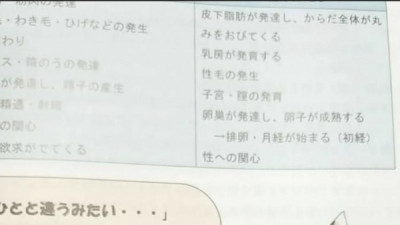 の発達
・わき毛・ひげなどの発生
わり
ス・陰のうの発達
が発達し、精子の産生
精通・射精
の関心
欲求がでてくる
皮下脂肪が発達し、からだ全体が丸
みをおびてくる
乳房が発育する
性毛の発生
子宮・腟の発育
卵巣が発達し、卵子が成熟する
→排卵・月経が始まる（初経）
性への関心
ひとと違うみたい・・・」